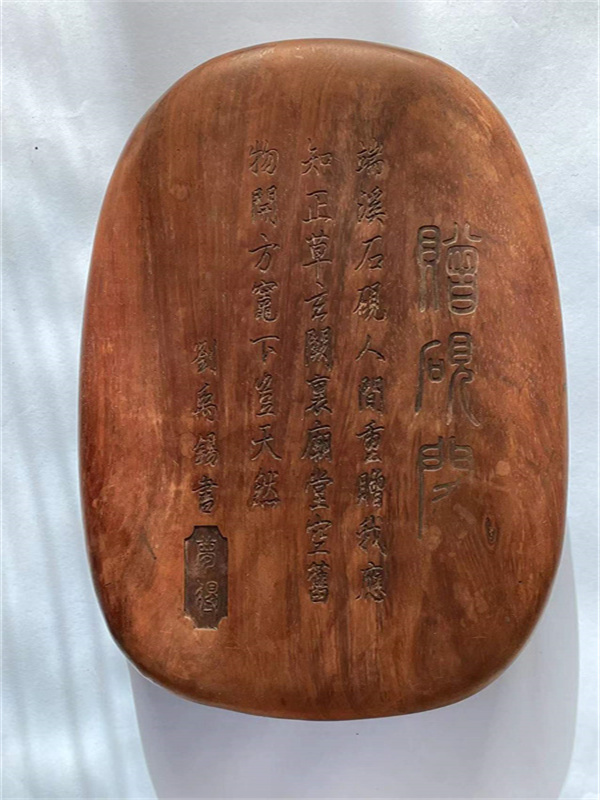 贈硯
端溪石硯人間重贈我應
知正草玄闕裏廟堂空舊
物開方竈下豈天然
劉禹錫書
夢得